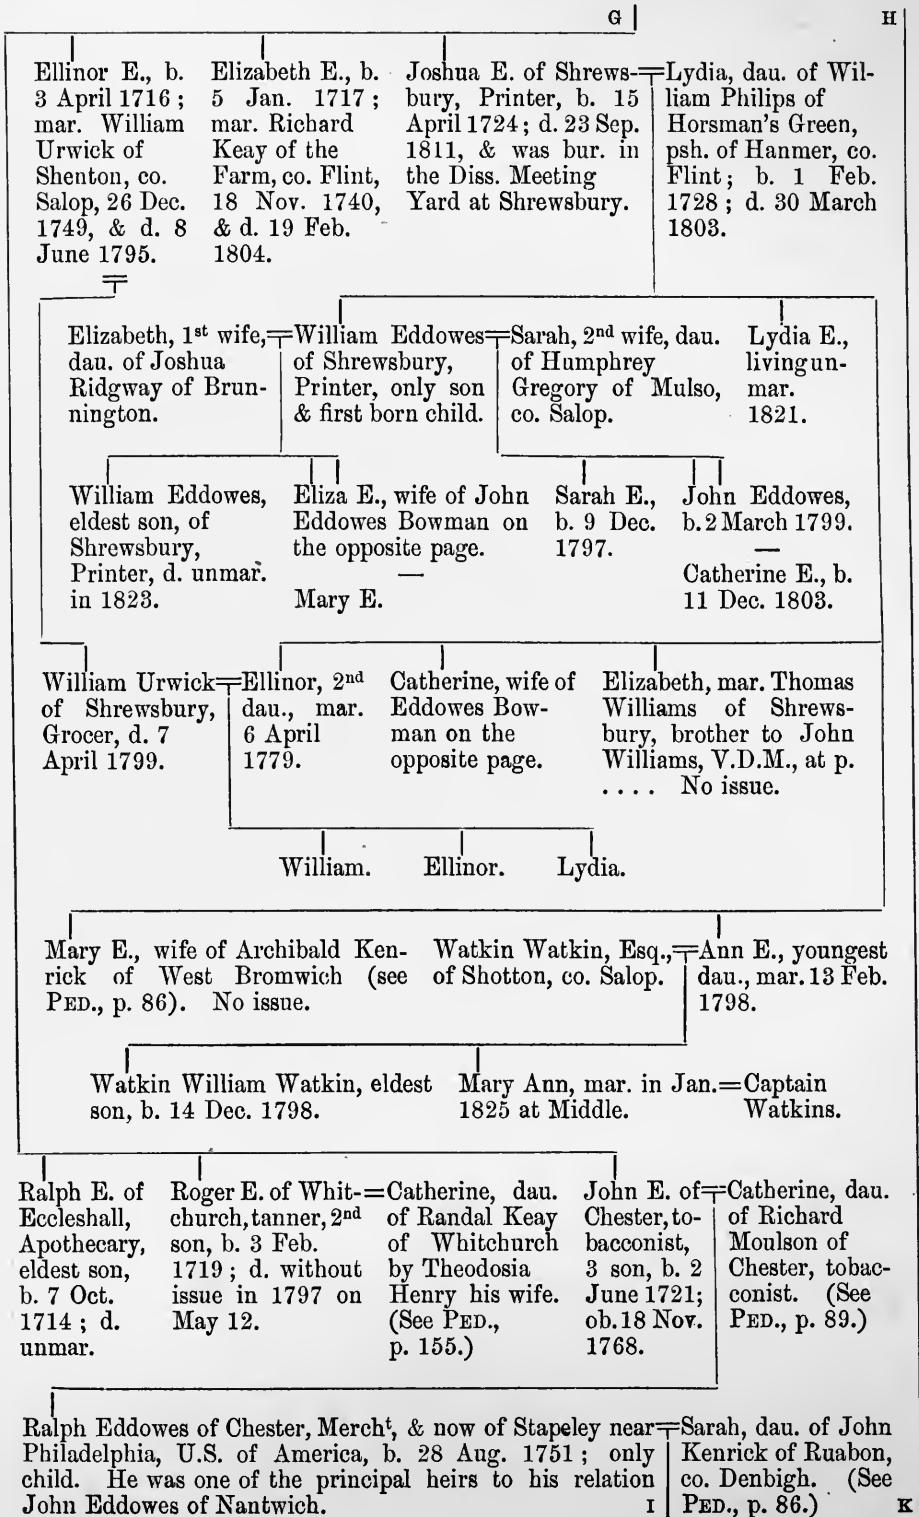 G H
Ellinor E., b.
3 April 1716 ;
mar. William
Urwick of
Shenton, co.
Salop, 26 Dec.
1749, & d. 8
June 1795.
Elizabeth E., b.
5 Jan. 1717 ;
mar. Richard
Keay of the
Farm, co. Flint,
18 Nov. 1740,
& d. 19 Feb.
1804.
Joshua E. of Shrews-
bury, Printer, b. 15
April 1724 ; d. 23 Sep.
1811, & was bur. in
the Diss. Meeting
Yard at Shrewsbury.
Lydia, dau. of Wil-
liam Philips of
Horsman's Green,
psh. of Hanmer, co.
Flint ; b. 1 Feb.
1728 ; d. 30 March
1803.
Elizabeth, 1st wife,
dau. of Joshua
Ridgway of Brun-
nington.
William Eddowes
of Shrewsbury,
Printer, only son
& first born child.
Sarah, 2nd wife, dau.
of Humphrey
Gregory of Mulso,
co. Salop.
Lydia E.,
living un-
mar.
1821.
William Eddowes,
eldest son, of
Shrewsbury,
Printer, d. unmar.
in 1823.
Eliza E., wife of John
Eddowes Bowman on
the opposite page.
—
Mary E.
Sarah E.,
b. 9 Dec.
1797.
John Eddowes,
b. 2 March 1799.
—
Catherine E., b.
11 Dec. 1803.
William Urwick
of Shrewsbury,
Grocer, d. 7
April 1799.
Ellinor, 2nd
dau., mar.
6 April
1779.
Catherine, wife of
Eddowes Bow-
man on the
opposite page.
Elizabeth, mar. Thomas
Williams of Shrews-
bury, brother to John
Williams, V.D.M., at p.
. . . . No issue.
William. Ellinor. Lydia.
Mary E., wife of Archibald Ken-
rick of West Bromwich (see
PED., p. 86). No issue.
Watkin Watkin, Esq.,
of Shotton, co. Salop.
Ann E., youngest
dau., mar. 13 Feb.
1798.
Watkin William Watkin, eldest
son, b. 14 Dec. 1798.
Mary Ann, mar. in Jan.
1825 at Middle.
Captain
Watkins.
Ralph E. of
Eccleshall,
Apothecary,
eldest son,
b. 7 Oct.
1714 ; d.
unmar.
Roger E. of Whit-
church, tanner, 2nd
son, b. 3 Feb.
1719 ; d. without
issue in 1797 on
May 12.
Catherine, dau.
of Randal Keay
of Whitchurch
by Theodosia
Henry his wife.
(See PED.,
p. 155.)
John E. of
Chester, to-
bacconist,
3 son, b. 2
June 1721;
ob. 18 Nov.
1768.
Catherine, dau.
of Richard
Moulson of
Chester, tobac-
conist. (See
PED., p. 89.)
Ralph Eddowes of Chester, Mercht, & now of Stapeley near
Philadelphia, U.S. of America, b. 28 Aug. 1751 ; only
child. He was one of the principal heirs to his relation
John Eddowes of Nantwich.
Sarah, dau. of John
Kenrick of Ruabon,
co. Denbigh. (See
PED., p. 86.)
I K